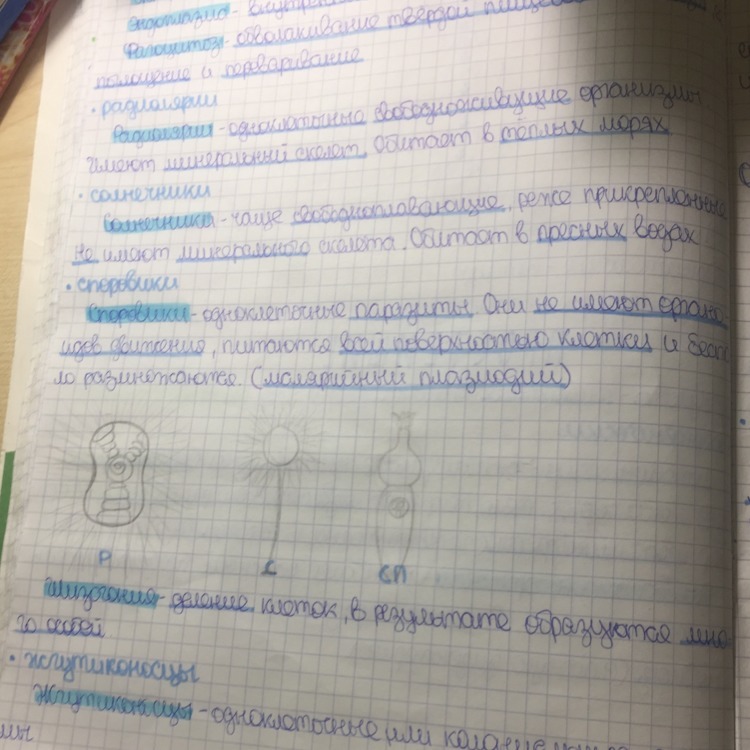 Эндоплазма - внутрен
Фагоцитоз - обволакивание твёрдой пищев
поглощение и переваривание
• радиолярии
Радиолярии - одноклеточные свободноживущие организмы
имеют минеральный скелет. Обитает в тёплых морях
• солнечники
Солнечники - чаще свободноплавающие, реже прикреплённые
не имеют минерального скелета. Обитает в пресных водах
• споровики
Споровики - одноклеточные паразиты. Они не имеют органо
идов движения, питаются всей поверхностью клетки и бесп
ло размножаются. (малярийный плазмодий)
Р С СП
Шизогония - деление клеток, в результате образуются мно
го особей
• жгутиконосцы
Жгутиконосцы - одноклеточные или